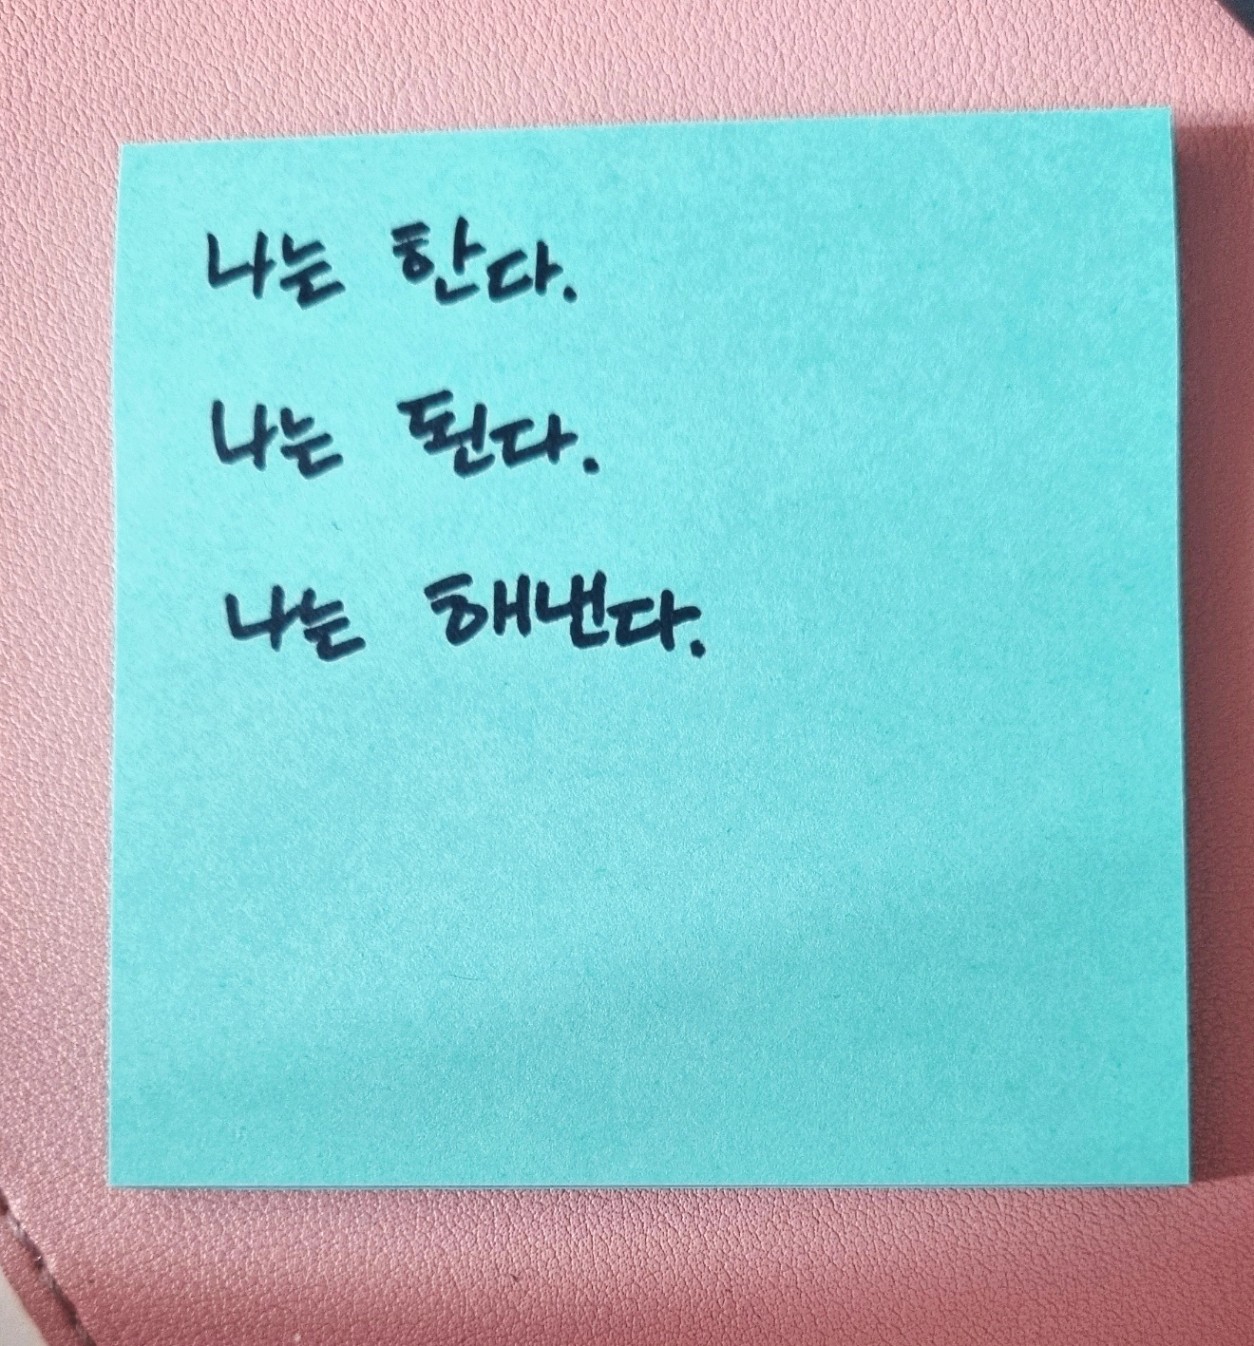 나는 한다.
나는 된다.
나는 해낸다.